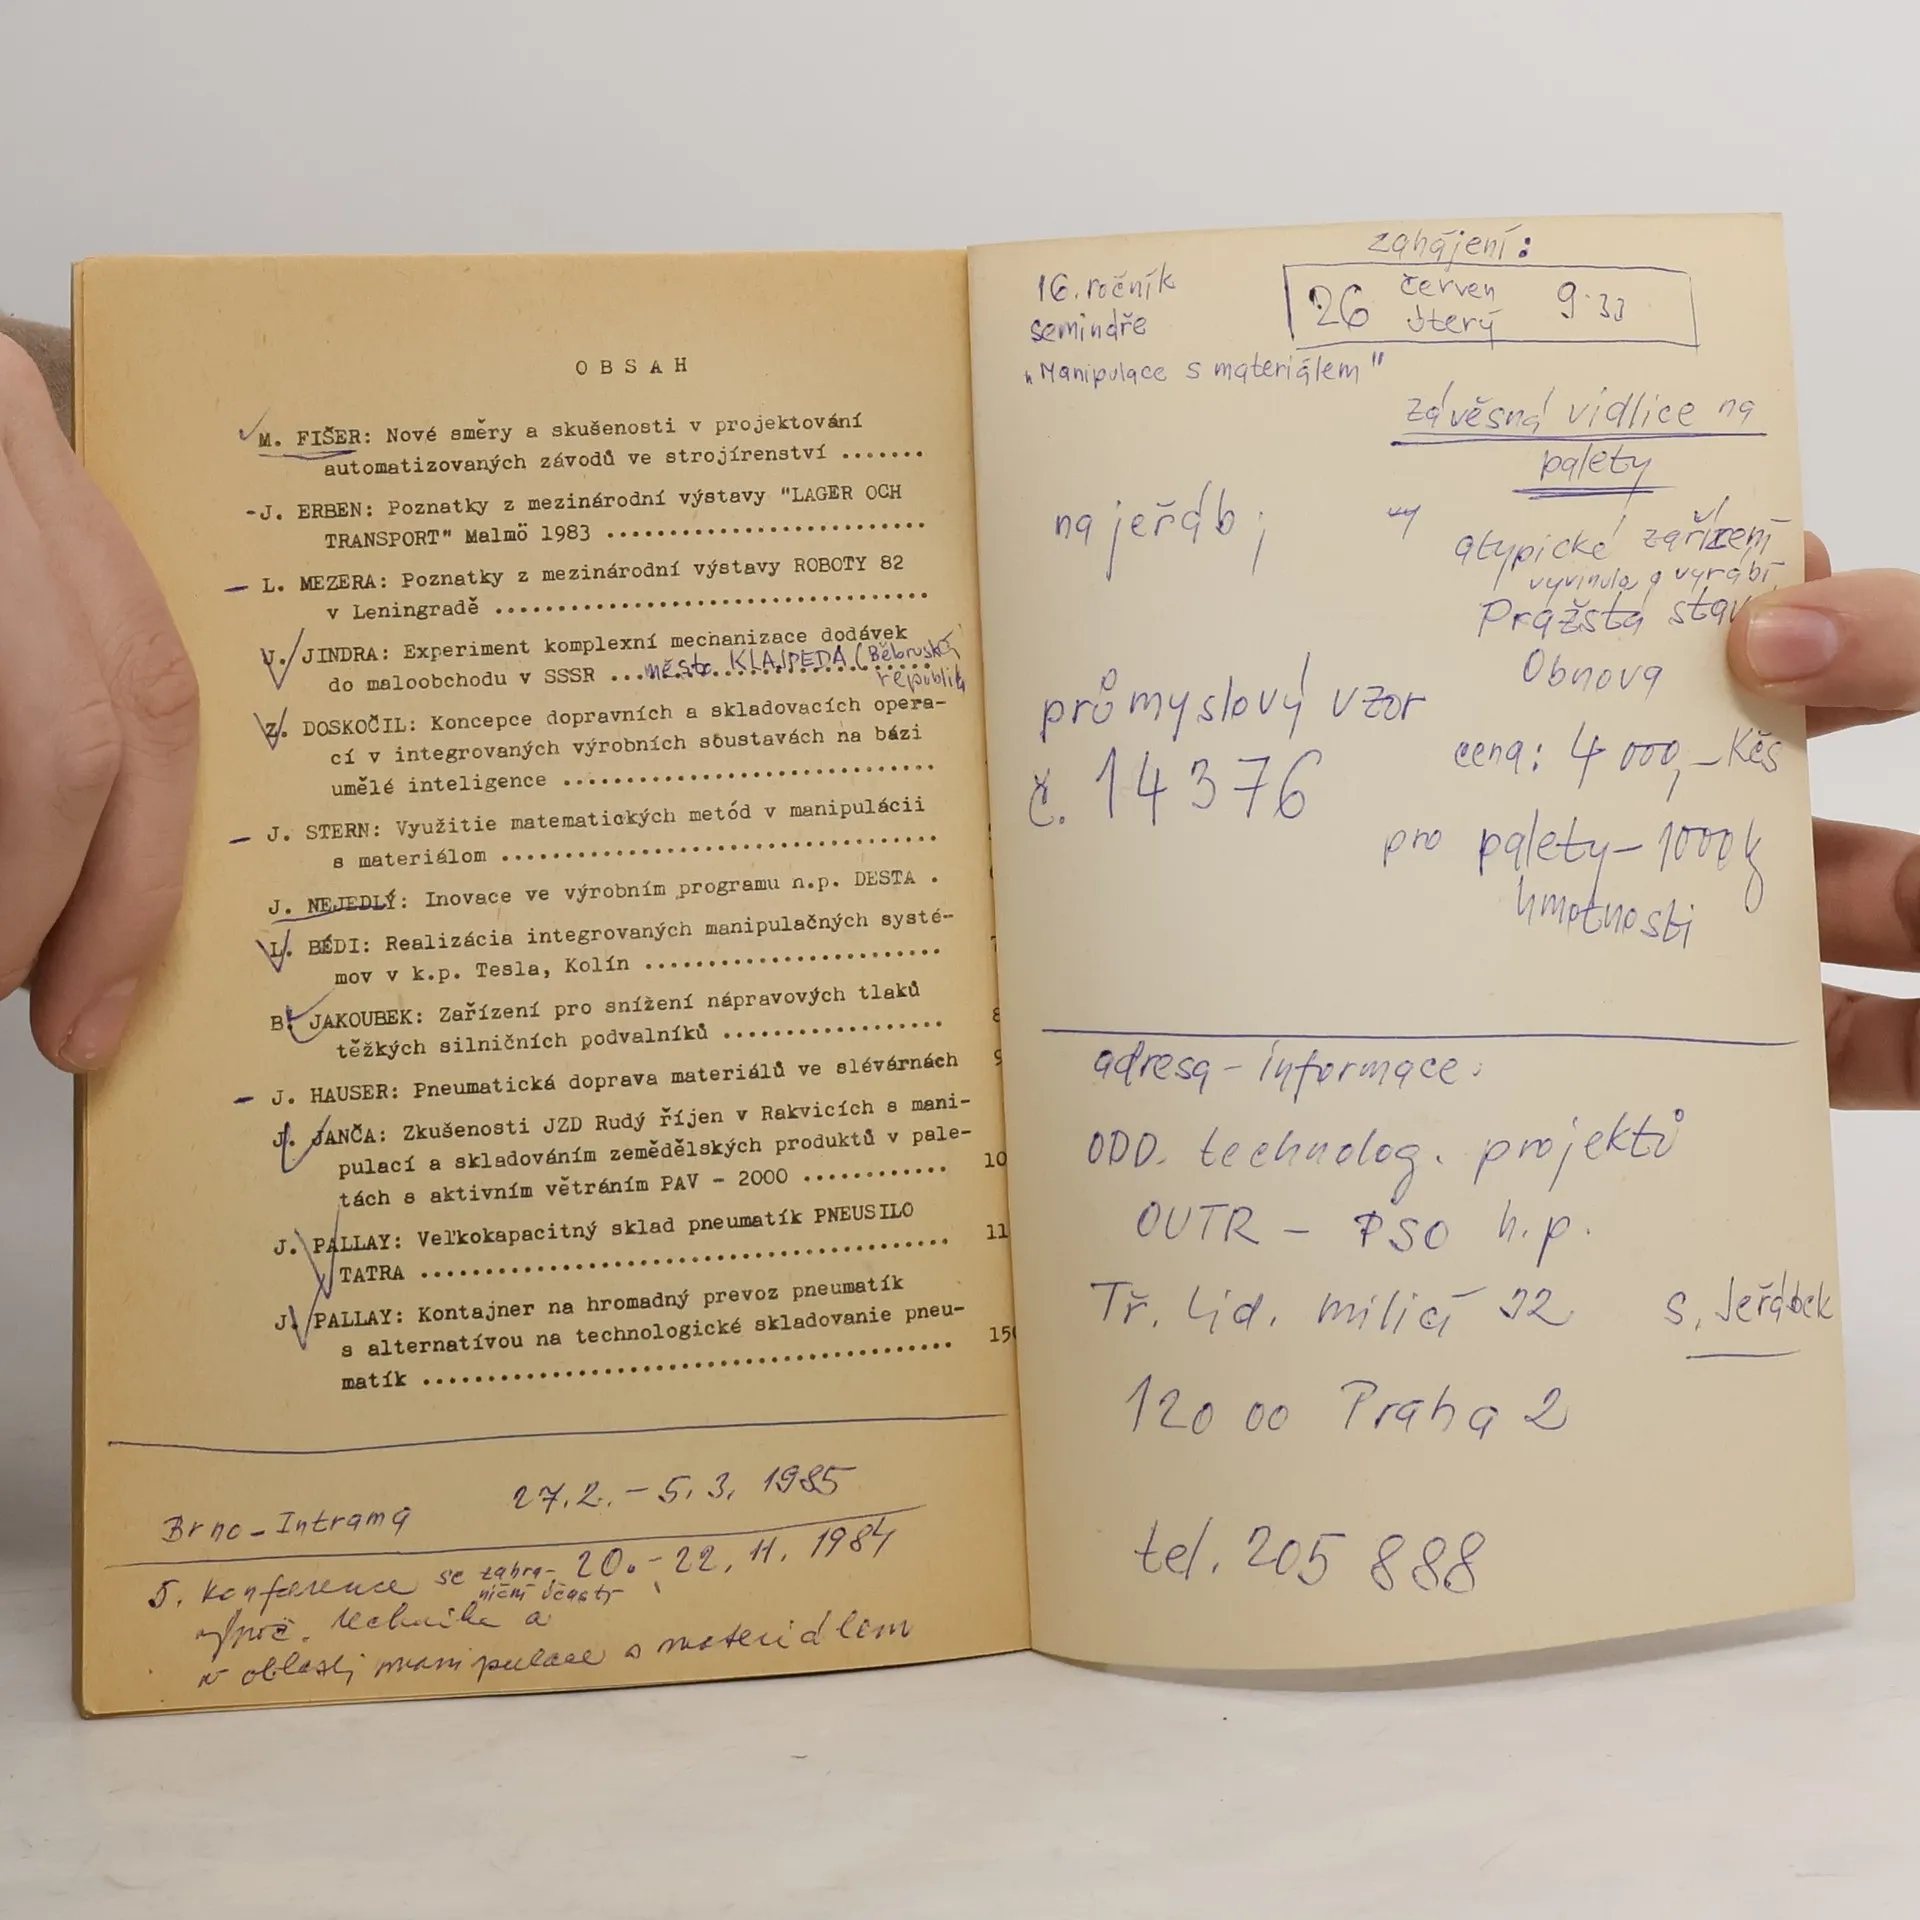 OBSAH
M. FIŠER: Nové směry a skušenosti v projektování
automatizovaných závodů ve strojírenství .......
-J. ERBEN: Poznatky z mezinárodní výstavy "LAGER OCH
TRANSPORT" Malmö 1983 ...........................
- L. MEZERA: Poznatky z mezinárodní výstavy ROBOTY 82
v Leningradě ....................................
V. JINDRA: Experiment komplexní mechanizace dodávek
do maloobchodu v SSSR ... město KLAJPEDA (Běbruská
republik
Z. DOSKOČIL: Koncepce dopravních a skladovacích opera-
cí v integrovaných výrobních soustavách na bázi
umělé inteligence ..............................
- J. STERN: Využitie matematických metód v manipulácii
s materiálom ....................................
J. NEJEDLÝ: Inovace ve výrobním programu n.p. DESTA .
L. BÉDI: Realizácia integrovaných manipulačných systé-
mov v k.p. Tesla, Kolín ........................
B. JAKOUBEK: Zařízení pro snížení nápravových tlaků
těžkých silničních podvalníků .................. 8
- J. HAUSER: Pneumatická doprava materiálů ve slévárnách 9
J. JANČA: Zkušenosti JZD Rudý říjen v Rakvicích s mani-
pulací a skladováním zemědělských produktů v pale-
tách s aktivním větráním PAV - 2000 ........... 10
J. PALLAY: Veľkokapacitný sklad pneumatík PNEUSILO
TATRA .......................................... 11
J. PALLAY: Kontajner na hromadný prevoz pneumatík
s alternatívou na technologické skladovanie pneu-
matík .......................................... 150
Brno - Intrama 27.2. - 5.3. 1985
5. Konference se zahra- 20. - 22. 11. 1984
niční účastí
výpoč. technika a
v oblasti manipulace s materiálem
zahájení:
16. ročník
26 červen 9.33
semináře úterý
„Manipulace s materiálem"
závěsná vidlice na
palety
na jeřáb;
atypické zařízení
vyvinula a vyrábí
Pražská stav
Obnova
průmyslový vzor
cena: 4 000,- Kčs
č. 14376
pro palety - 1000 k
hmotnosti
adresa - informace:
ODD. technolog. projektů
OUTR - PSO n.p.
Tř. Lid. milicí 22 s. Jeřábek
120 00 Praha 2
tel. 205 888